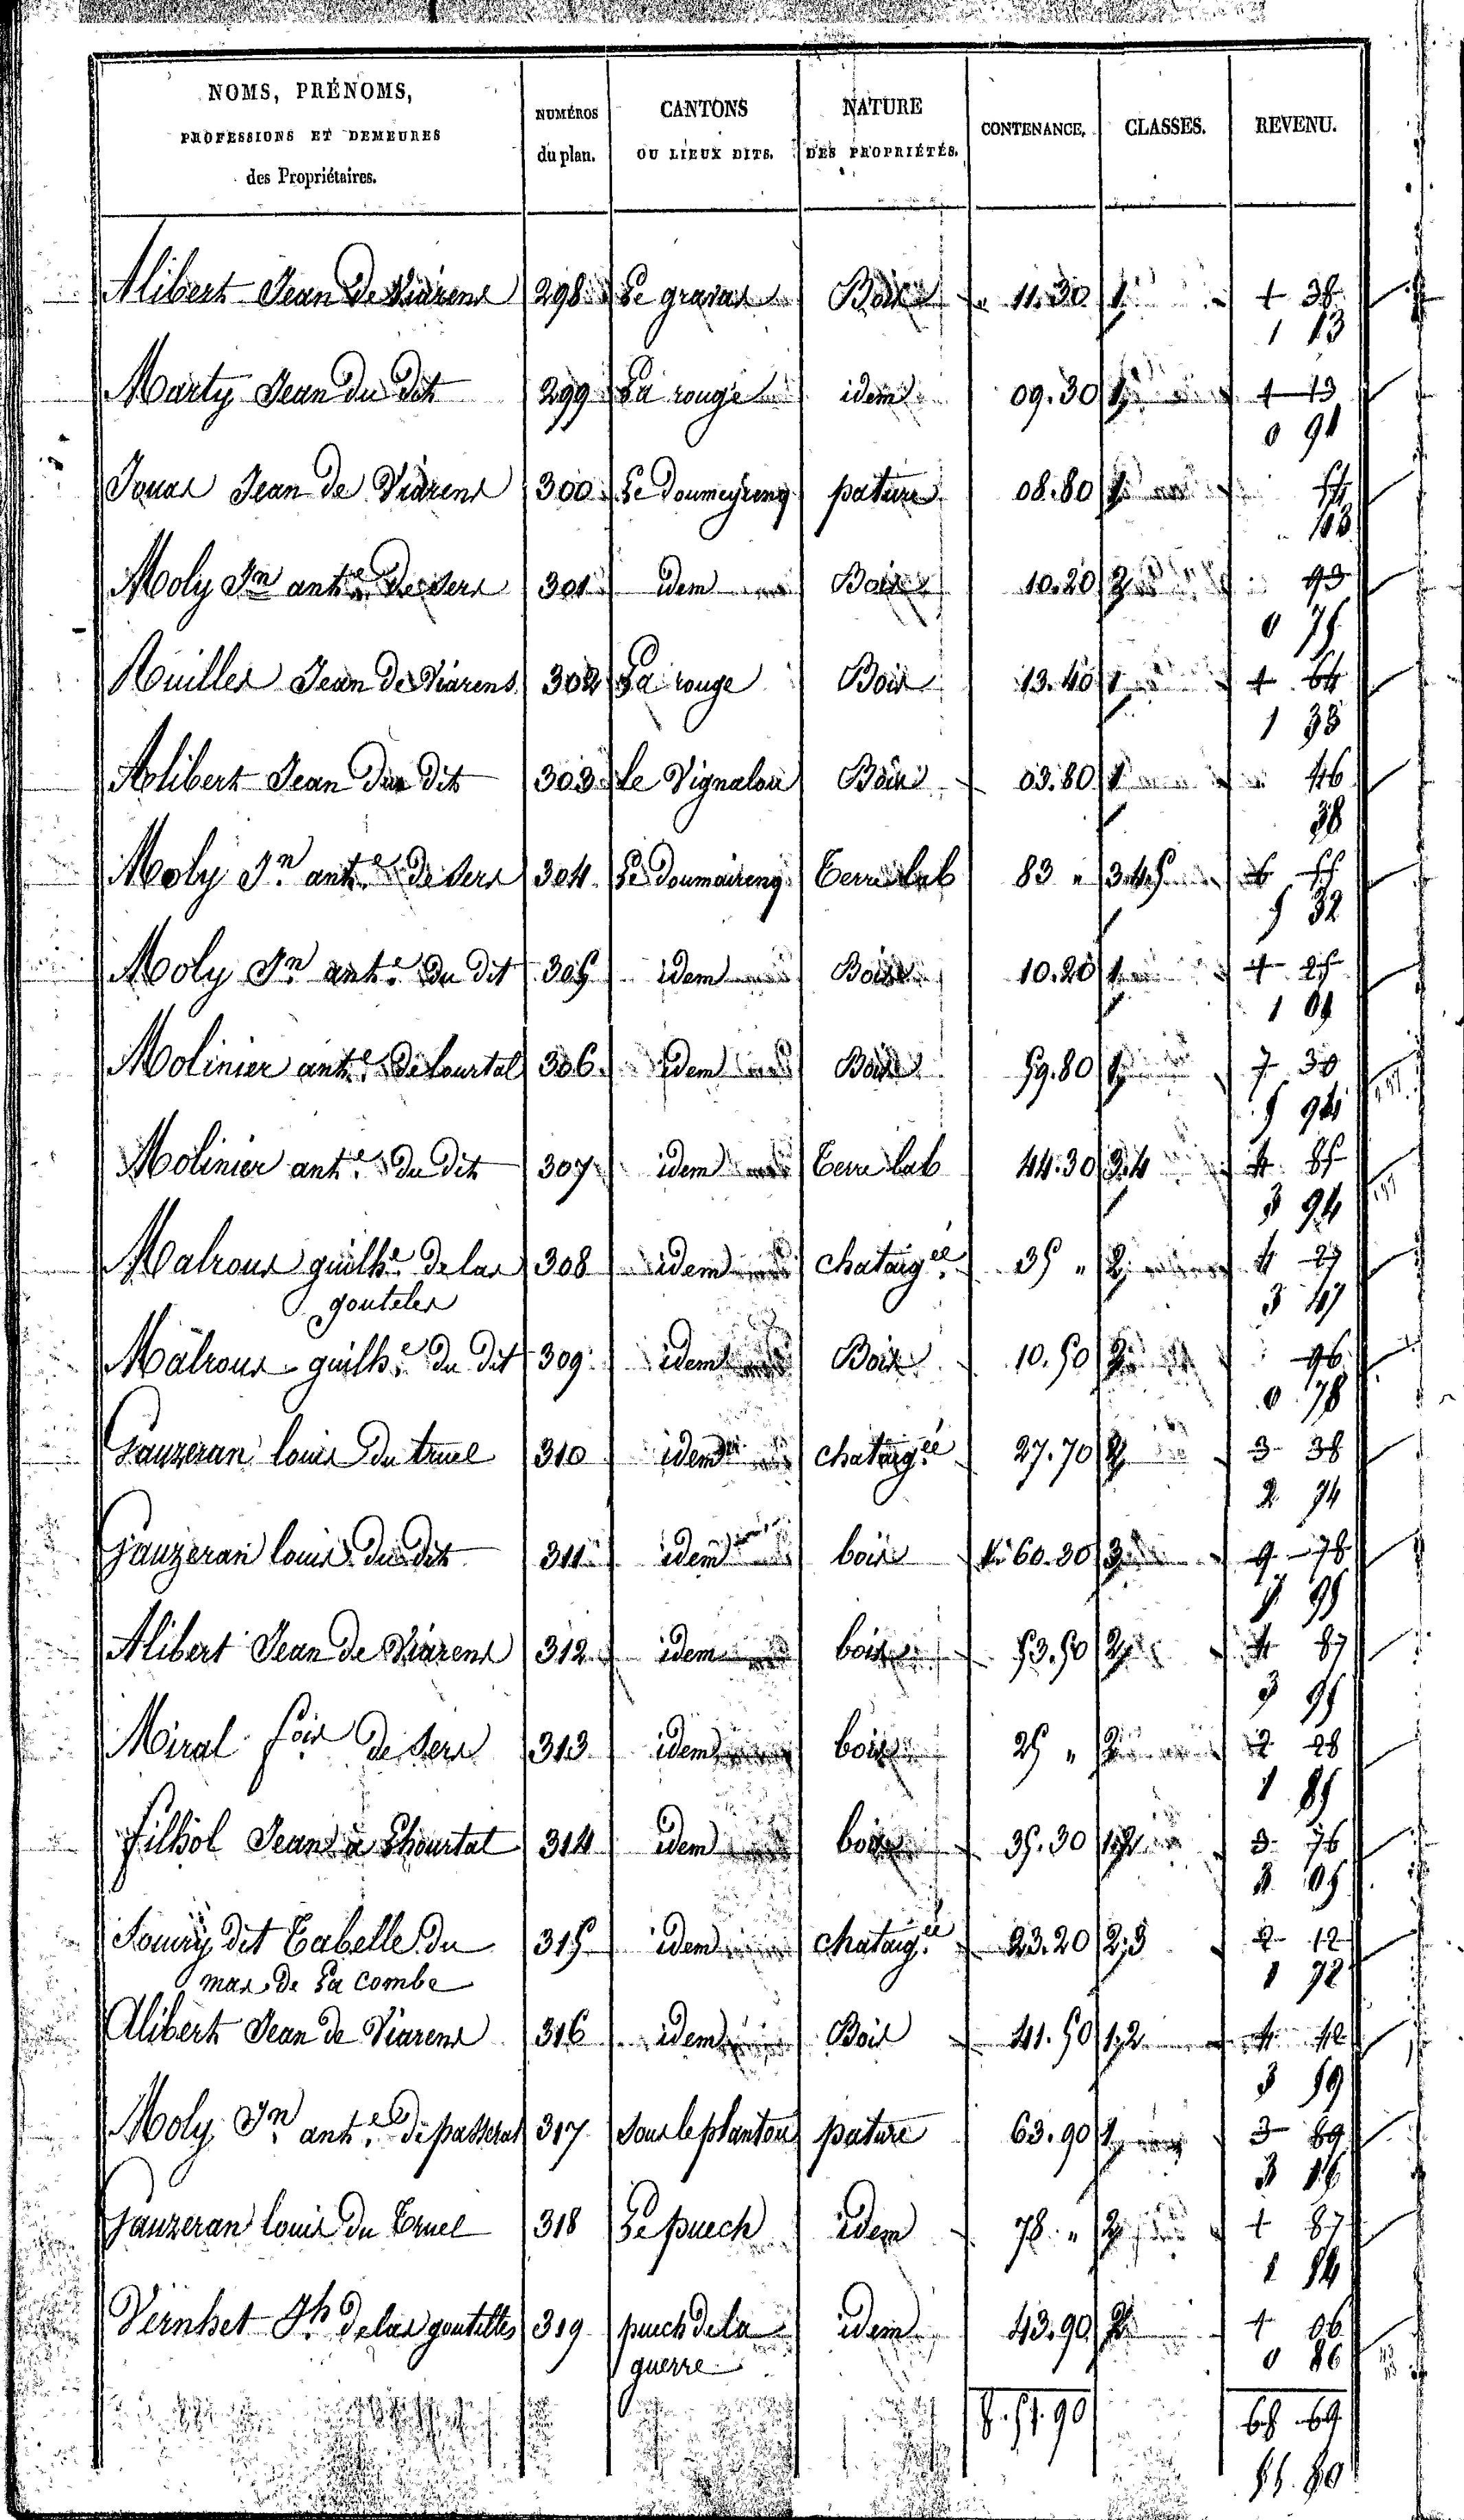 NOMS, PRÉNOMS, PROFESSIONS ET DEMEURES des Propriétaires. NUMÉROS du plan. CANTONS OU LIEUX DITS. NATURE DES PROPRIÉTÉS. CONTENANCE. CLASSES. REVENU.
Alibert Jean de Viarens 298 Le gravas Bois 11.30 1 1 38
1 13
Marty Jean du dit 299 La rouge idem 09.30 1 1 13
0 91
Jean de Viarens 300 pature 08.80
Moly Jn ante de Sers 301 idem Bois 10.20 2 93
0 75
Jean de Viarens 302 La rouge Bois 13.40 1 1 64
1 33
Alibert Jean du dit 303 le Vignalou Bois 03.80 1 46
38
Moly Jn ante de Sers 304 Terre lab 83 " 3.4.5 6 55
5 32
Moly Jn ante du dit 305 idem Bois 10.20 1 1 25
1 01
Molinier ante de Lourtal 306 idem Bois 59.80 1 7 30
5 94
Molinier ante du dit 307 idem Terre lab 44.30 3.4 4 85
3 94
Malroux guilhe de las 308 idem chataigée 35 " 2 4 27
gouteles 3 47
Malroux guilhe du dit 309 idem Bois 10.50 2 96
0 78
Gauzeran louis du truel 310 idem chataigée 27.70 2 3 38
2 74
Gauzeran louis du dit 311 idem bois 1.60.30 3 9 78
7 95
Alibert Jean de Viarens 312 idem bois 53.50 2 4 87
3 95
Miral fois de Sers 313 idem bois 25 " 2 2 28
1 85
filhol Jean à Lhourtat 314 idem bois 35.30 1.2 3 76
3 05
dit Cabelle du 315 idem chataigée 23.20 2.3 2 12
mas de La combe 1 72
Alibert Jean de Viarens 316 idem Bois 41.50 1.2 4 42
3 59
Moly Jn ante de passerat 317 Sous le plantou pature 63.90 1 3 89
3 16
Gauzeran louis du Truel 318 Le puech idem 78 " 2 1 87
1 54
Vernhet Jh de las goutelles 319 puech de la idem 43.90 2 1 06
guerre 0 86
8.51.90 68 69
55.80